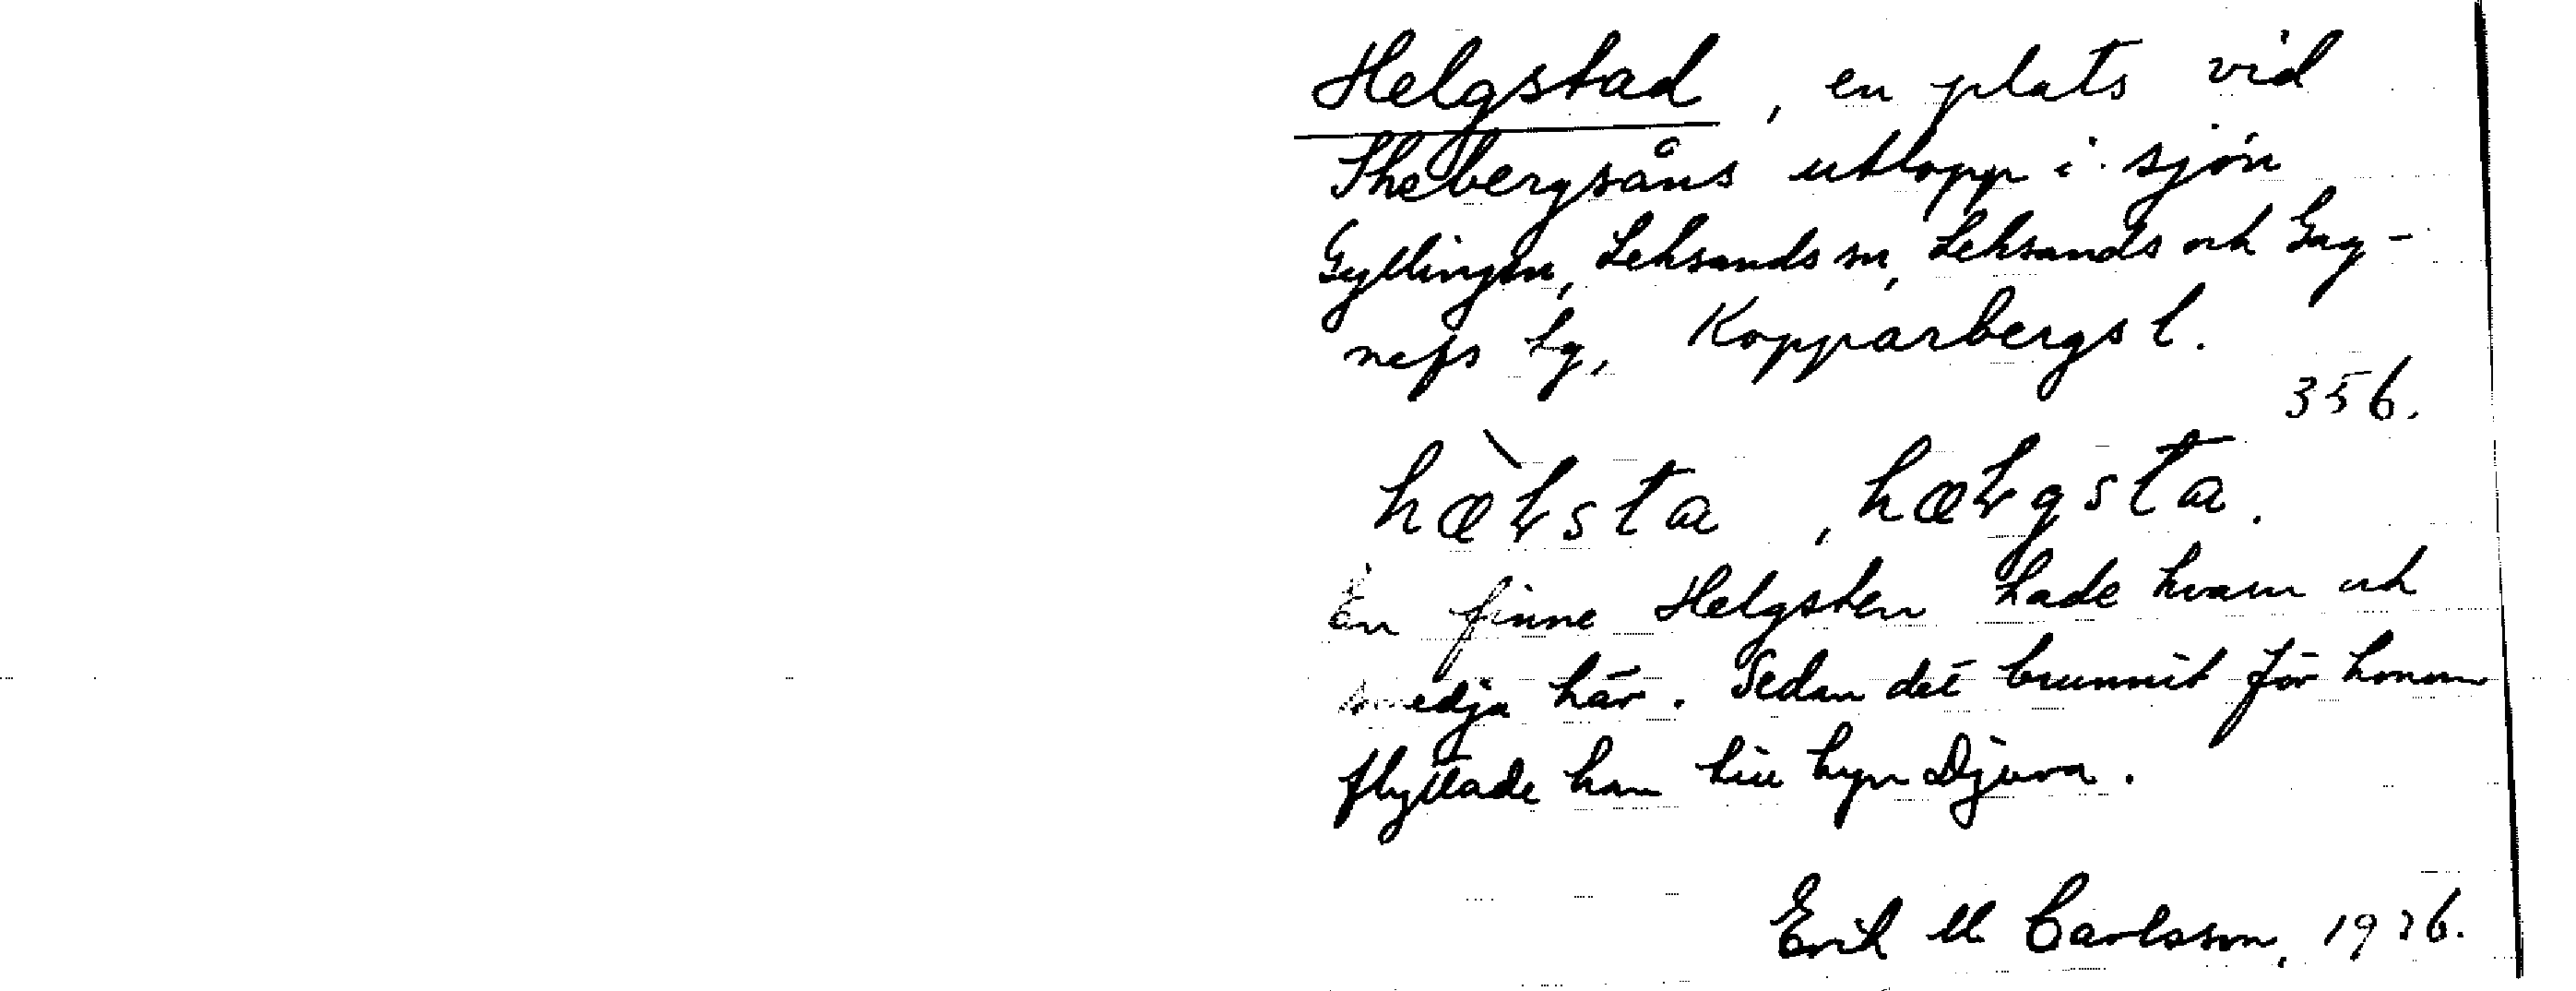 Helgstad, en plats vid
Skebergsåns utlopp i sjön
Gyllingen, Leksands sn, Leksands och Gag-
nefs tg, Kopparbergs l.
356.
hæ̀ɫsta, hæɫgsta.
En finne Helgsten hade kvarn och
smedja här. Sedan det brunnit för honom
flyttade han till byn Djura.
Erik M Carlsson, 1936.